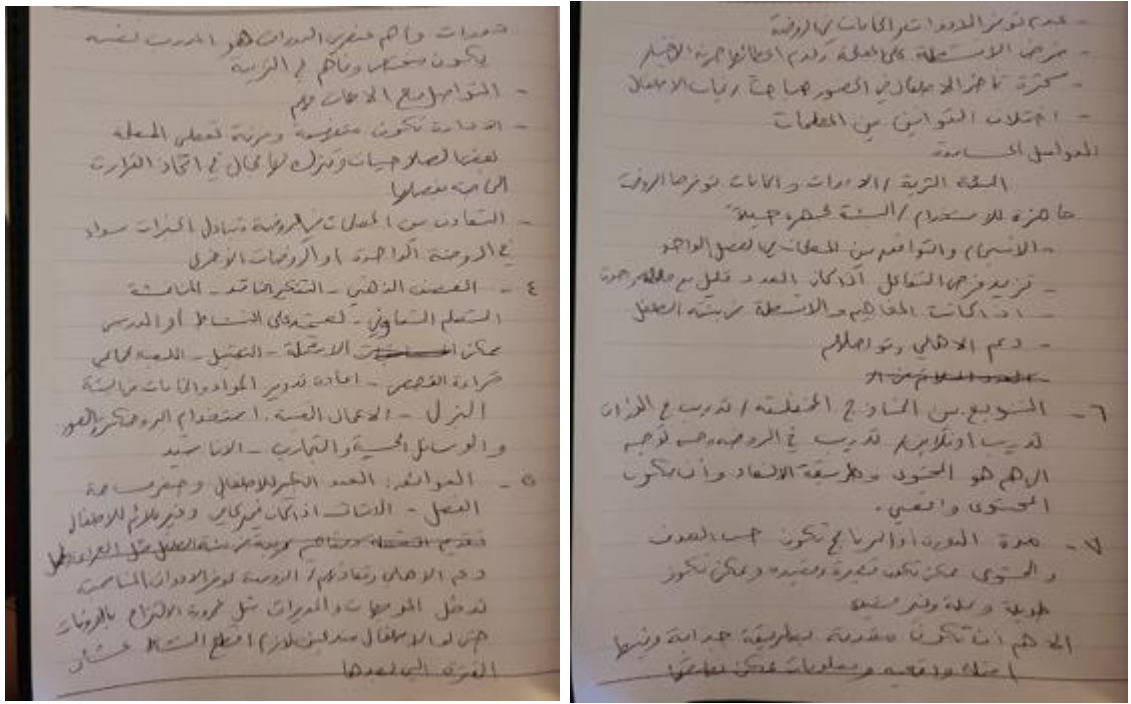 دورات واهم عنصر في الدورات هو المدرب لنفسه
يكون مختص وفاهم في التربة
- التواصل مع الامهات مهم
- الادارة تكون متفهمة ومرنة تعطي المعلمة
بعض الصلاحيات وتترك لها مجال في اتخاذ القرارت
الخاصة بفصلها
- التعاون بين المعلمات في الروضة وتبادل الخبرات سواء
في الروضة الواحدة او الروضات الأخرى
٤ - العصف الذهني - التفكير الناقد - المناقشة
التعلم التعاوني - تعتمد على النشاط أو الدرس
ممكن الاسئلة - التمثيل - اللعب الجماعي
قراءة القصص - اعادة تدوير المواد والخامات من البيئة
المنزل - الاعمال الفنية. استخدام الروضة بالصور
والوسائل الحسية والتجارب - الاناشيد
٥ - العوائق: العدد الكبير للاطفال وصغر مساحة
الفصل - الاثاث اذا كان غير كافي وغير ملائم للاطفال
دعم الاهالي وتعاونهم / الروضة توفر الادوات المناسبة
تدخل الموجهات والمديرات مثل ضرورة الالتزام بالروتينات
حتى لو الاطفال مندمجين لازم اقطع النشاط عشان
الفترة الي بعدها
- عدم توفر الادوات والخامات في الروضة
- فرض الانشطة على المعلمة وعدم اعطائها حرية الاختيار
- كثرة تاخر الاطفال في الحضور صباحاً وغياب الاطفال
- اختلاف القوانين بين المعلمات
العوامل المساعدة
البيئة الثرية / الادوات والخامات توفرها الروضة
جاهزة للاستخدام / البيئة
- الانسجام والتوافق بين المعلمات في الفصل الواحد
- تزيد فرص التفاعل اذا كان العدد قليل مع
- اذا كانت المفاهيم والانشطة من بيئة الطفل
- دعم الاهالي وتواصلهم
٦ - التنويع بين النماذج المختلفة / تدريب في الوزارة
تدريب اونلاين / تدريب في الروضة
الاهم هو المحتوى وطريقة الالقاء وأن يكون
المحتوى واقعي.
٧ - مدة الدورة او البرنامج تكون حسب الهدف
والمحتوى ممكن تكون قصيرة ومفيده وممكن تكون
طويلة ومملة وغير مفيده
المهم ان تكون مقدمة بطريقة جذابة وفيها
امثلة واقعية ومعلومات ممكن تطبيقها